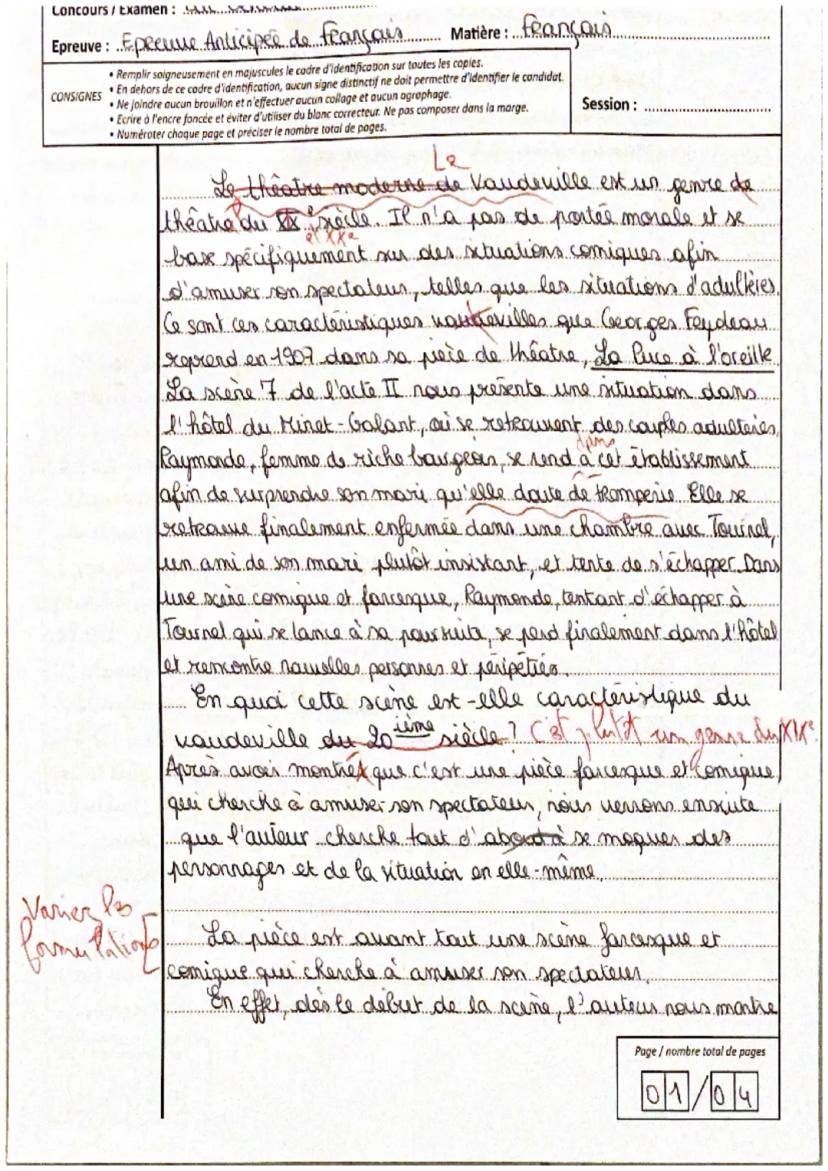 Concours / Examen :
Epreuve : Epreuve Anticipée de Français Matière : Français
CONSIGNES
• Remplir soigneusement en majuscules le cadre d'identification sur toutes les copies.
• En dehors de ce cadre d'identification, aucun signe distinctif ne doit permettre d'identifier le candidat.
• Ne joindre aucun brouillon et n'effectuer aucun collage et aucun agraphage.
• Ecrire à l'encre foncée et éviter d'utiliser du blanc correcteur. Ne pas composer dans la marge.
• Numéroter chaque page et préciser le nombre total de pages.
Session :
Le
Le théâtre moderne de Vaudeville est un genre de
théâtre du XXe siècle. Il n'a pas de portée morale et se
et XXe
base spécifiquement sur des situations comiques afin
d'amuser son spectateur, telles que les situations d'adultères.
Ce sont ces caractéristiques vaudevilles que Georges Feydeau
reprend en 1907 dans sa pièce de théâtre, La Puce à l'oreille
La scène 7 de l'acte II nous présente une situation dans
l'hôtel du Minet-Galant, où se retrouvent des couples adultères.
dans
Raymonde, femme de riche bourgeois, se rend à cet établissement
afin de surprendre son mari qu'elle doute de tromperie. Elle se
retrouve finalement enfermée dans une chambre avec Tournel,
un ami de son mari plutôt insistant, et tente de s'échapper. Dans
une scène comique et farcesque, Raymonde, tentant d'échapper à
Tournel qui se lance à sa poursuite, se perd finalement dans l'hôtel
et rencontre nouvelles personnes et péripéties.
En quoi cette scène est-elle caractéristique du
vaudeville du 20ième siècle ? C'est plutôt un genre du XIXe.
Après avoir montré que c'est une pièce farcesque et comique,
qui cherche à amuser son spectateur, nous verrons ensuite
que l'auteur cherche tout d'abord à se moquer des
personnages et de la situation en elle-même.
Varier les
formulations
La pièce est avant tout une scène farcesque et
comique qui cherche à amuser son spectateur.
En effet, dès le début de la scène, l'auteur nous montre
Page / nombre total de pages
01/04